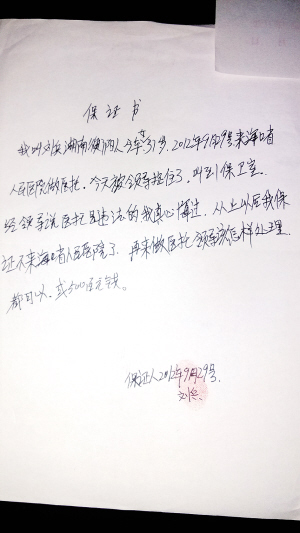 保证书
我叫刘兵湖南汉川人今年31号,2012年9月29号来海口省
人民医院做医托,今天被领导抓住了,叫到保卫室
经领导说医托是违法的我真心悔过,从上以后我保
证不来海口省人民医院了,再来做医托领导该怎样处理
都可以,或500百元钱。
保证人2012年9月29号.
刘兵.